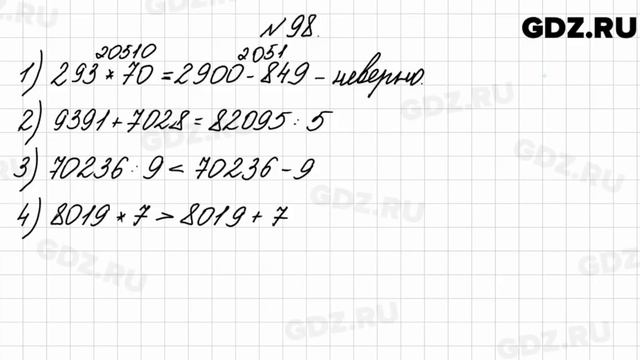 GDZ.RU
№98.
20510 2051
1) 293 * 70 = 2900 - 849 - неверно.
2) 9391 + 7028 = 82095 : 5
3) 70236 : 9 < 70236 - 9
4) 8019 * 7 > 8019 + 7
GDZ.RU
GDZ.RU
GDZ.RU
GDZ.RU
GDZ.RU
GDZ.RU
GDZ.RU
GDZ.RU